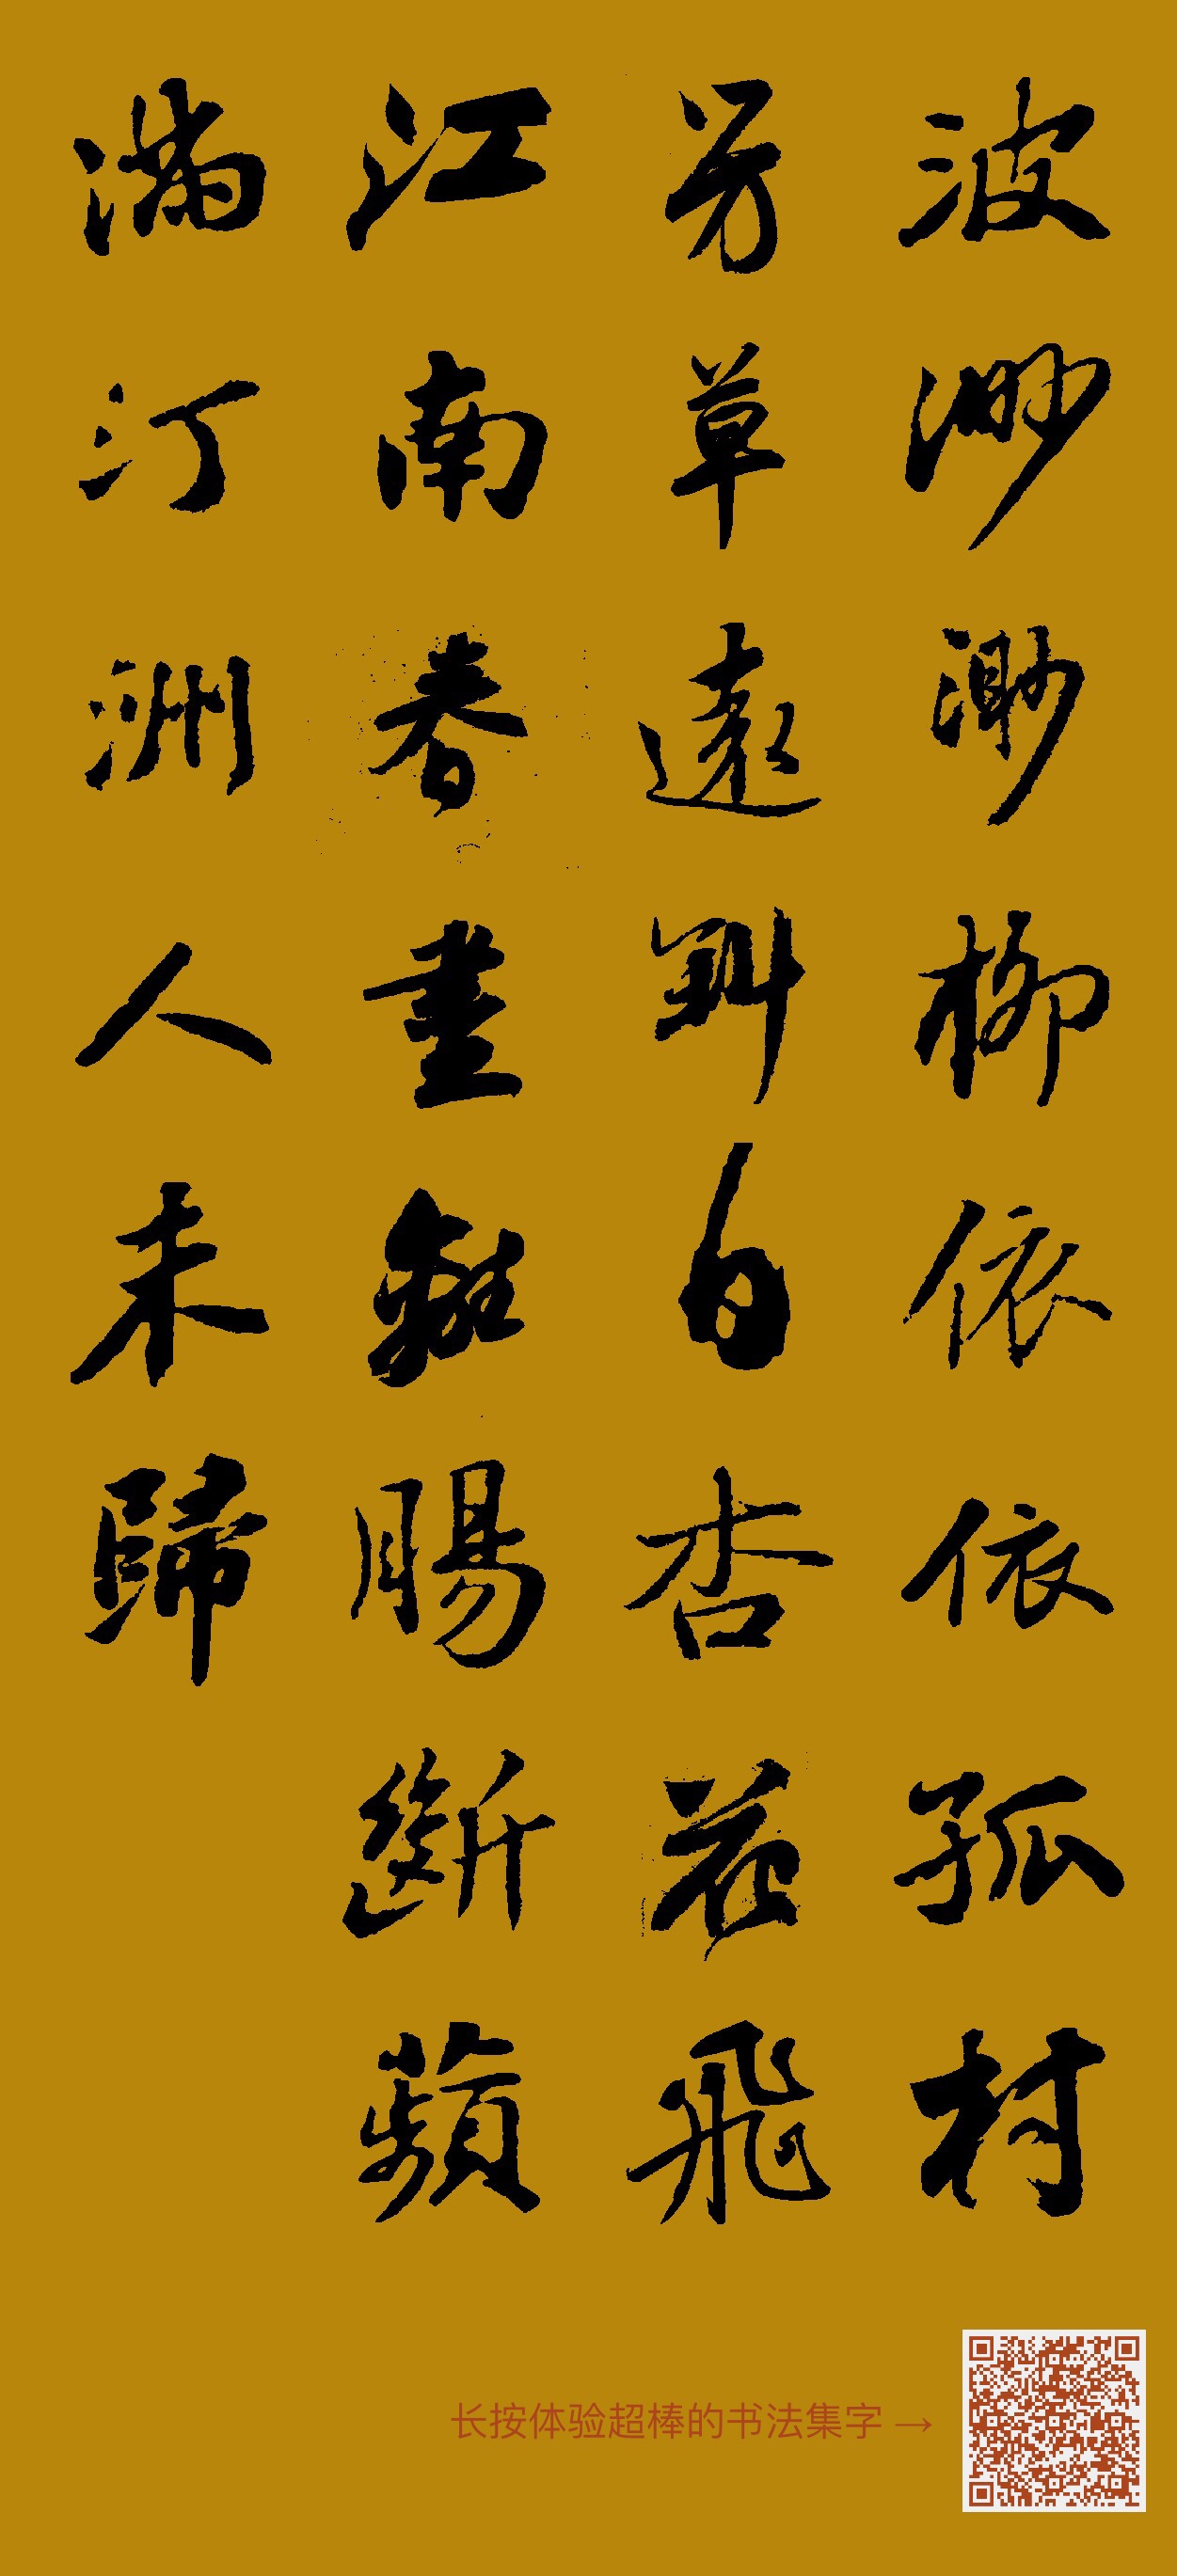 波渺渺柳依依孤村
芳草遠斜日杏花飛
江南春盡離腸斷蘋
滿汀洲人未歸
长按体验超棒的书法集字 →